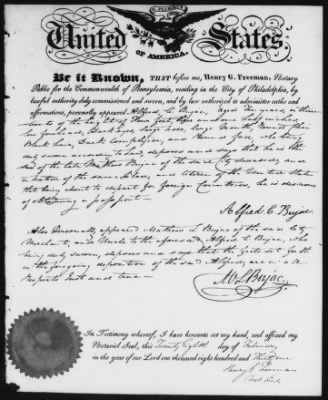 United States
OF AMERICA.
Be it Known, THAT before me, HENRY G. FREEMAN, Notary
Public for the Commonwealth of Pennsylvania, residing in the City of Philadelphia, by
lawful authority duly commissioned and sworn, and by law authorized to administer oaths and
affirmations, personally appeared Alfred C. Bujac, Aged years, in
low forehead, Black eyes, large nose, large Mouth, round Chin
Black hair, Dark Complexion, and face, who being
duly sworn according to law, deposes and says that he is the
son of the late Mathew Bujac of the said City deceased, and
a native of the same place, and citizen of the United States
that being about to depart for foreign Countries, he is desirous
of obtaining a passport—
Alfred C. Bujac.
Also Personally appeared Mathew L. Bujac of the said City
Merchant, and Uncle to the aforesaid, Alfred C. Bujac, who
being duly sworn, deposes and says that the facts set forth
in the foregoing deposition of the said Alfred, are in all
respects Just and true—
M. L. Bujac.
In Testimony whereof, I have hereunto set my hand, and affixed my
Notarial Seal, this Twenty Eighth day of February
in the year of our Lord one thousand eight hundred and Thirty one
Henry G Freeman